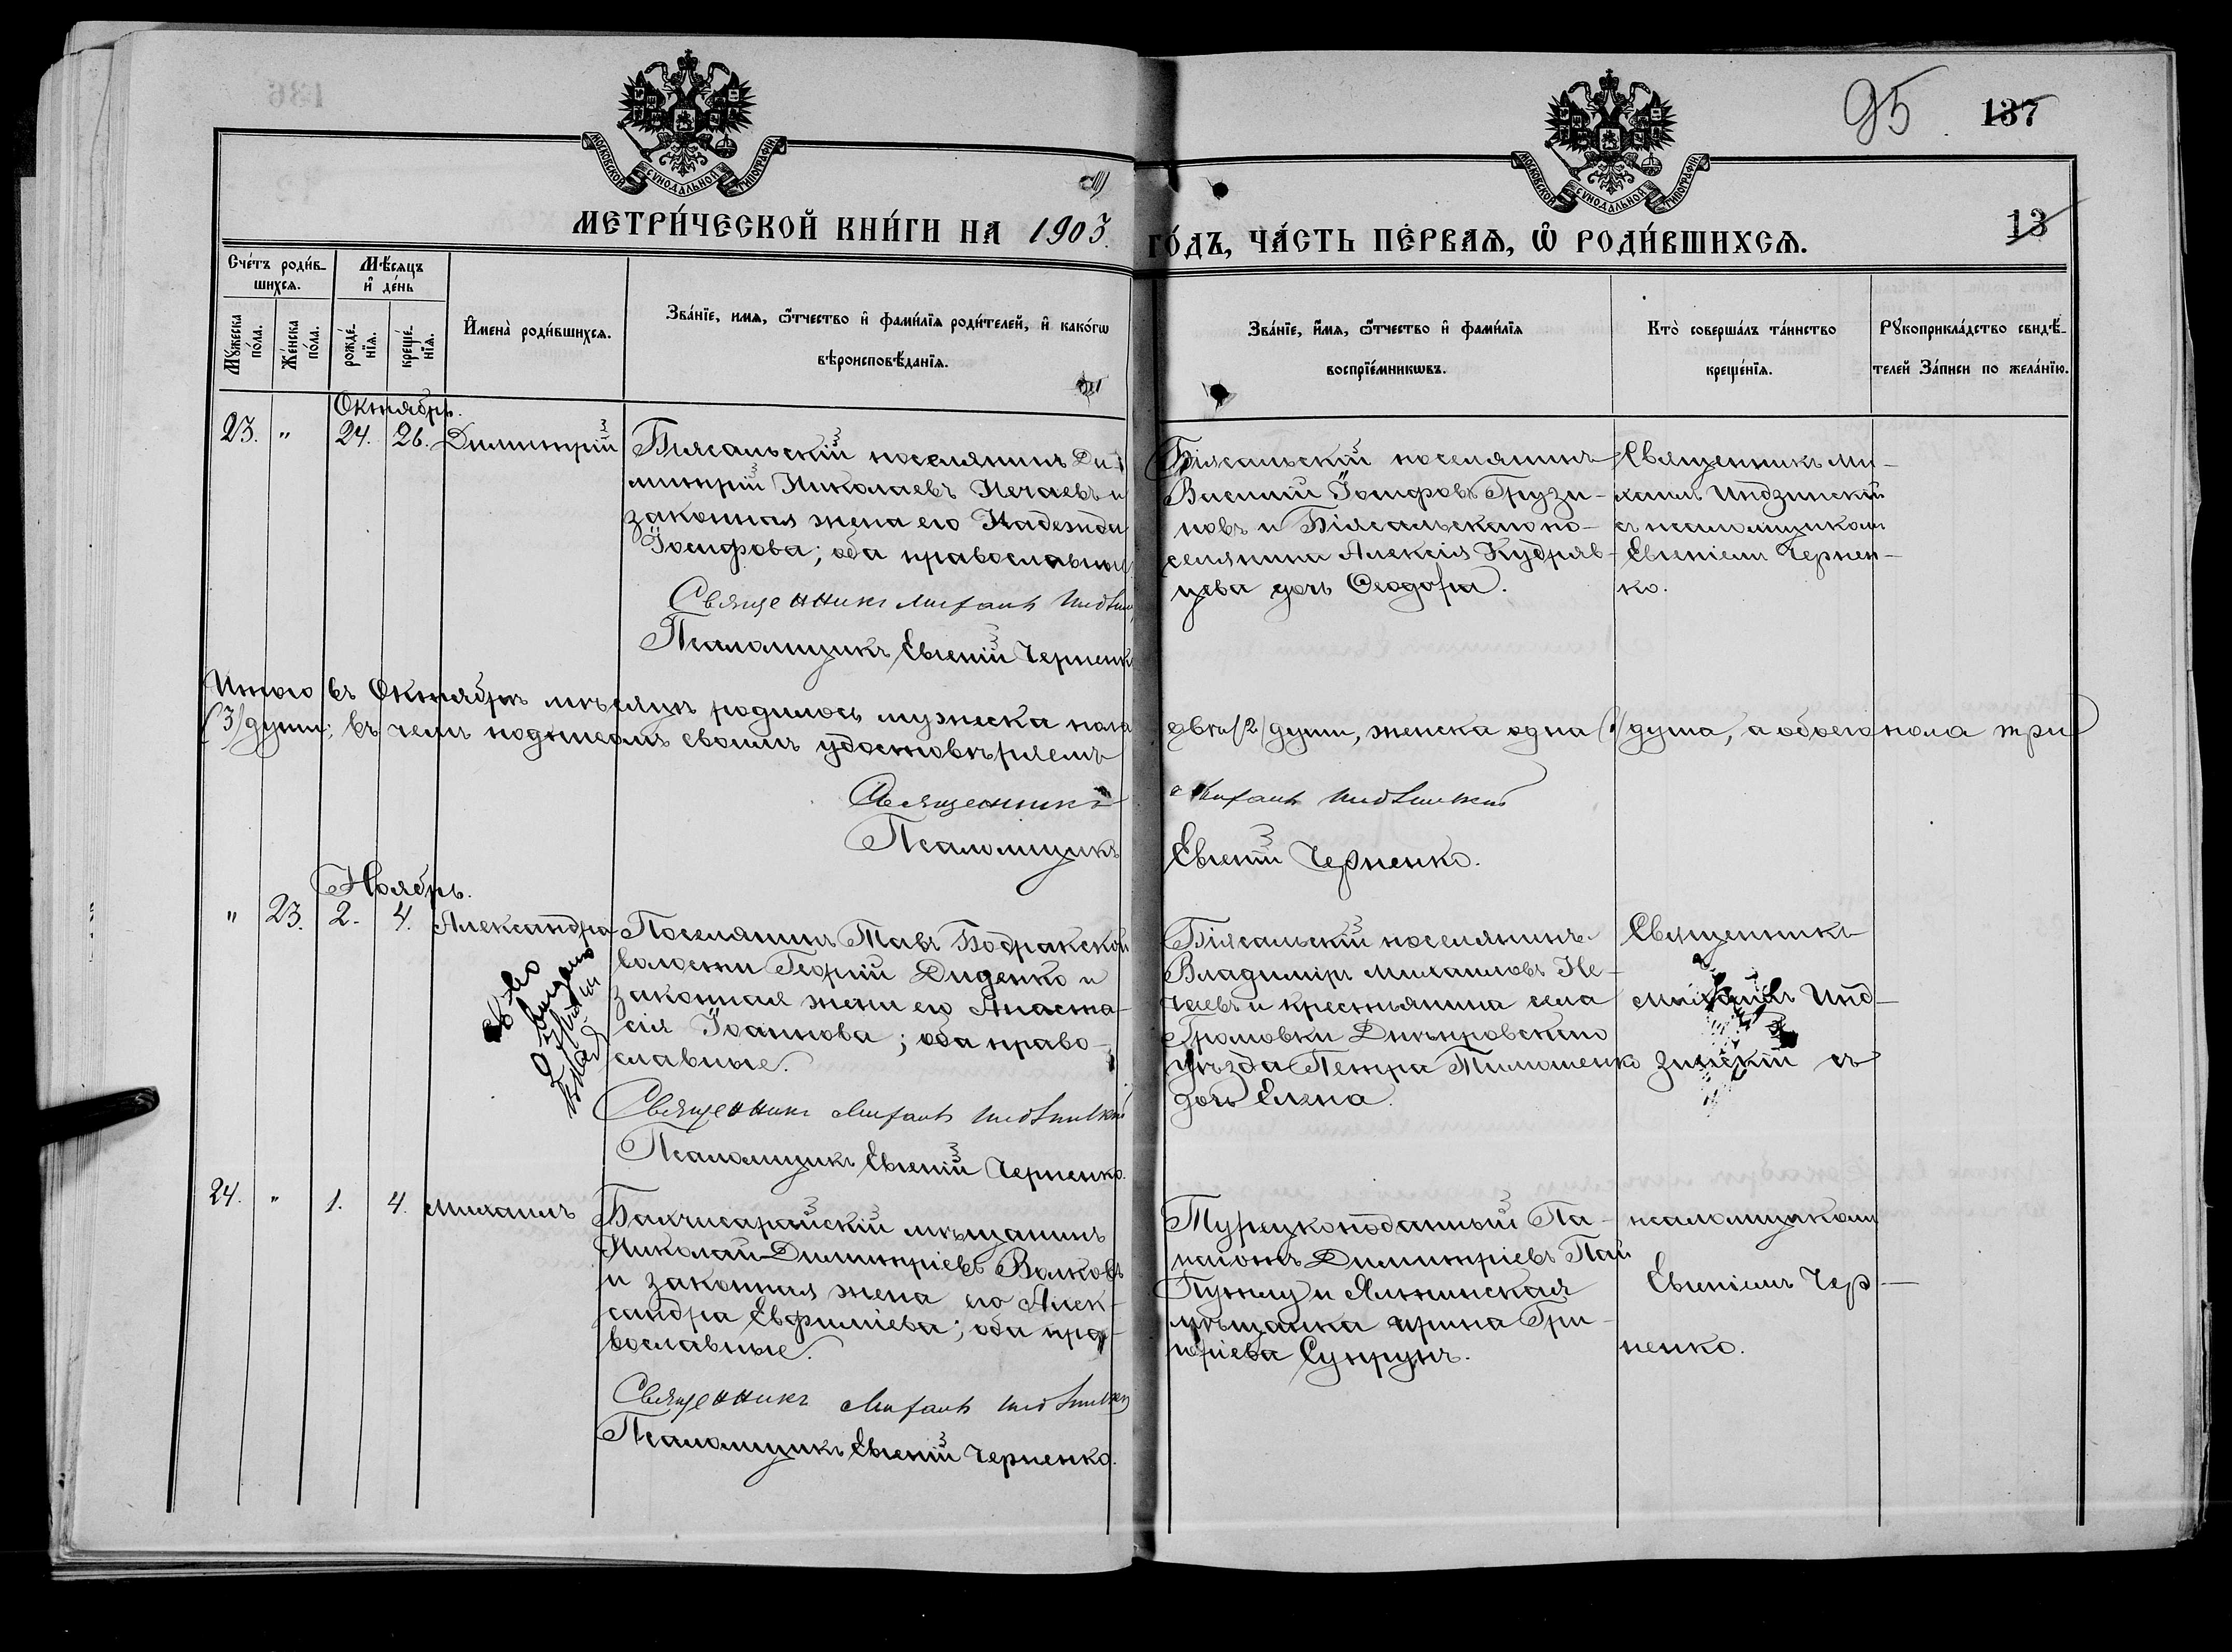 95 137
МОСКОВСКОЙ СУНОДАЛЬНОЙ ТИПОГРАФІИ
МОСКОВСКОЙ СУНОДАЛЬНОЙ ТИПОГРАФІИ
13
МЕТРИ́ЧЕСКОЙ КНИ́ГИ НА 1903. ГО́ДЪ, ЧА́СТЬ ПЕ́РВАЯ, Ѽ РОДИ́ВШИХСЯ.
Сче́тъ роди́в-
шихся.
Мѣ́сяцъ
и҆ де́нь
Мꙋ́жеска
по́ла.
Же́нска
по́ла.
рожде́-
нїя.
креще́-
нїя.
И҆мена̀ роди́вшихся.
Зва́нїе, имя, ѻ҆́тчество и҆ фами́лїя роди́телей, и҆ како́гѡ
вѣроисповѣ́данїя.
Зва́нїе, и҆́мя, ѻ҆́тчество и҆ фами́лїя
воспрїе́мникѡвъ.
Кто̀ соверша́лъ та́инство
креще́нїя.
Рꙋкоприкла́дство свидѣ́-
телей За́писи по жела́нїю.
Октябрь.
23. " 24. 26. Димитрій
Біясальскій поселянинъ Ди-
митрій Николаевъ Нечаевъ и
законная жена его Надежда
Іосифова; оба православные
Священникъ Михаилъ
Псаломщикъ Евгеній Черненко
Біясальскій поселянинъ
Василій Іосифовъ Грузи-
новъ и Біясальскаго по-
селянина Алексія Кудряв-
цева дочь Ѳеодора.
Священникъ Ми-
хаилъ Индзинскій
съ псаломщикомъ
Евгеніемъ Чернен-
ко.
Итого въ Октябрѣ мѣсяцѣ родилось мужеска пола двѣ (2) души, женска одна (1) душа, а обоего пола три
(3) души; въ чемъ подписомъ своимъ удостовѣряемъ
Священникъ Михаилъ Индзинскій
Псаломщикъ Евгеній Черненко.
Ноябрь.
" 23. 2. 4. Александра
св-во
выдано
Поселянинъ Тавъ Бодракской
волости Георгій Диденко и
законная жена его Анаста-
сія Іоаннова; оба право-
славные.
Священникъ Михаилъ Индзинскій
Псаломщикъ Евгеній Черненко.
Біясальскій поселянинъ
Владиміръ Михаиловъ Не-
чаевъ и крестьянина села
Громовки Днѣпровскаго
уѣзда Петра Тимошенко
дочь Елена.
Священникъ
Михаилъ Инд-
зинскій съ
24. " 1. 4. Михаилъ
Бахчисарайскій мѣщанинъ
Николай Димитріевъ Волковъ
и законная жена его Алек-
сандра Евфиміева; оба пра-
вославные.
Священникъ Михаилъ Индзинскій
Псаломщикъ Евгеній Черненко.
Турецкоподанный Па-
Димитріевъ
и Ялтинская
мѣщанка Ирина Гри-
горіева Супрунъ.
псаломщикомъ
Евгеніемъ Чер-
ненко.